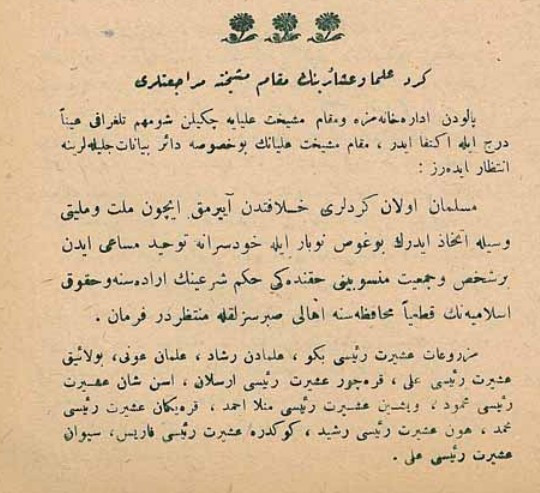 كرد علما و عشائرينك مقام مشيخته مراجعتلرى
پالودن اداره‌خانه‌مزه ومقام مشيخت عليايه چكيلن شومهم تلغرافى عيناً
درج ايله اكتفا ايدر ، مقام مشيخت عليانك بوخصوصه دائر بيانات جليله‌لرينه
انتظار ايده‌رز :
مسلمان اولان كردلرى خلافتدن آييرمق ايچون ملت ومليتى
وسيله اتخاذ ايدرك بوغوص نوبار ايله خودسرانه توحيد مساعى ايدن
برشخص وجمعيت منسوبينى حقنده‌كى حكم شرعينك اراده‌سنه وحقوق
اسلاميه‌نك قطعياً محافظه‌سنه اهالى صبرسزلقله منتظردر فرمان .
مزروعات عشيرت رئيسى بكو ، علمادن رشاد ، علمان عونى ، بولانيق
عشيرت رئيسى على ، قره‌جور عشيرت رئيسى ارسلان ، اسن شان عشيرت
رئيسى محمود ، ويشين عشيرت رئيسى منلا احمد ، قره‌بكان عشيرت رئيسى
محمد ، هون عشيرت رئيسى رشيد ، كوكدره عشيرت رئيسى فاريس ، سيوان
عشيرت رئيسى على .